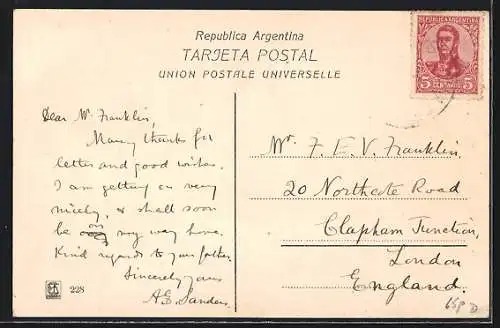 Republica Argentina
TARJETA POSTAL
UNION POSTALE UNIVERSELLE
REPUBLICA ARGENTINA
5 CENTAVOS 5
Dear Mr Franklin,
Many thanks for
letter and good wishes.
I am getting on very
nicely, & shall soon
be on my way home.
Kind regards to your father
Sincerely yours
A E Sanders
228
Mr. F. E. V. Franklin,
20 Northcote Road
Clapham Junction,
London
England.